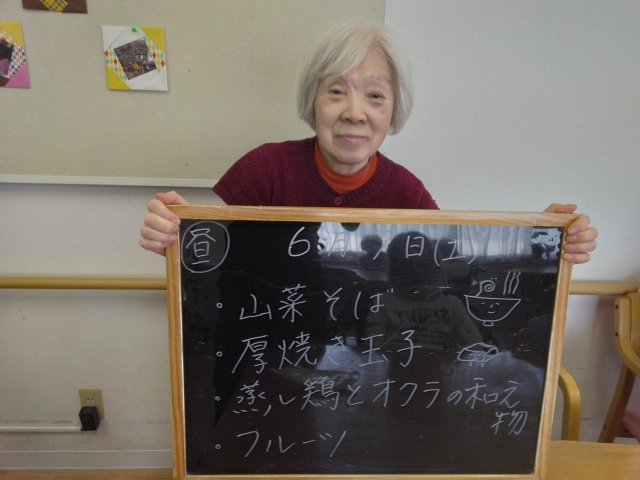 昼 6月 日(土)
・山菜そば
・厚焼き玉子
・蒸し鶏とオクラの和え
物
・フルーツ